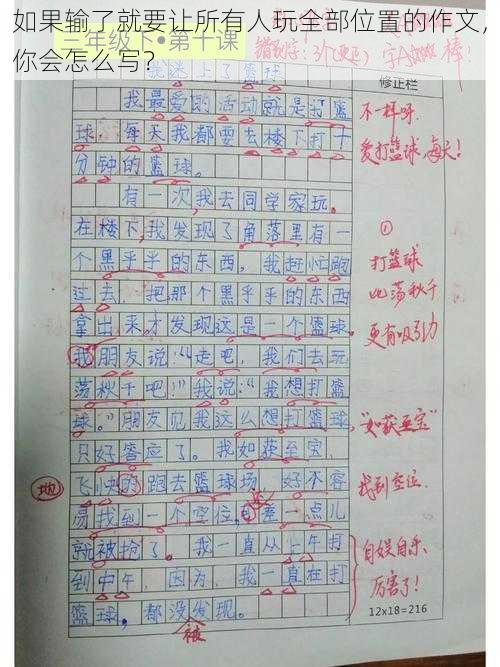 如果输了就要让所有人玩全部位置的作文，
你会怎么写？
三年级下•第十课
错别字：3个(更正)
我迷上了篮球
修正栏
我最爱的活动就是打篮
球，每天我都要去楼下打十
分钟的篮球。
有一次，我去同学家玩。
在楼下，我发现了角落里有一
个黑乎乎的东西，我赶忙跑
过去，把那个黑乎乎的东西
拿出来才发现这是一个篮球。
我朋友说：“走吧，我们去玩
荡秋千吧！”我说：“我想打篮
球。”朋友见我这么想打篮球，
只好答应了。我如获至宝，
飞快的跑去篮球场，好不容
易找到一个空位，差一点儿
就被抢了。我一直从上午打
到中午，因为，我一直在打
篮球，都没发现。
地
被
不一样呀，
爱打篮球，每天！
①
打篮球
比荡秋千
更有吸引力
“如获至宝”
找到空位，
自娱自乐、
厉害了！
12x18=216